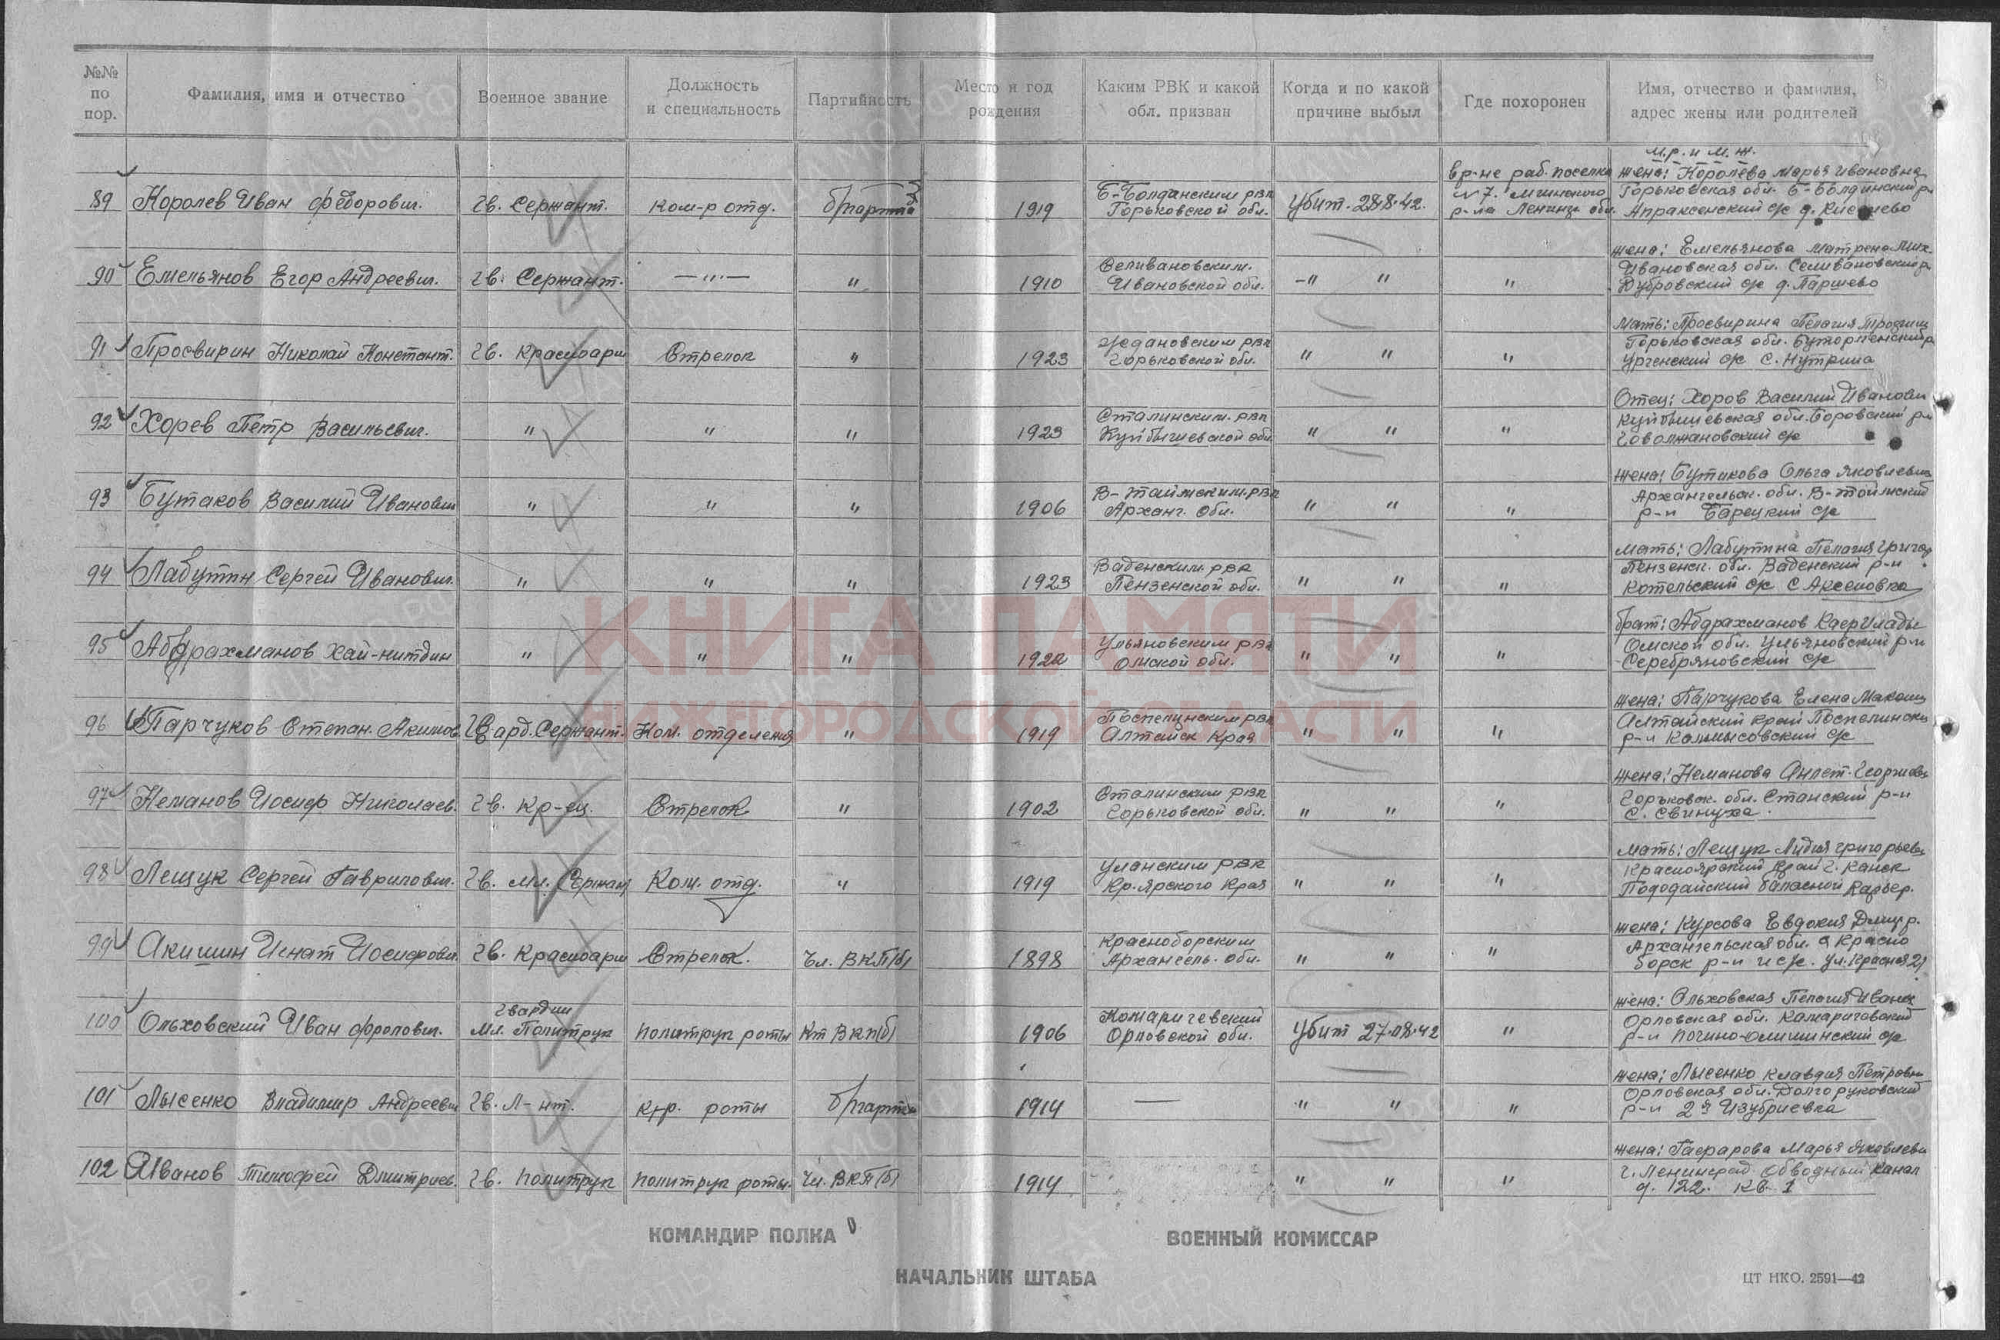 №№ по пор.
Фамилия, имя и отчество
Военное звание
Должность и специальность
Партийность
Место и год рождения
Каким РВК и какой обл. призван
Когда и по какой причине выбыл
Где похоронен
Имя, отчество и фамилия, адрес жены или родителей
м.р. и м.ж.
89 Королев Иван Федорович. Гв. Сержант. Ком-р отд. б/парти 1919
Б-Болданским РВК
Горьковской обл.
Убит. 28.8.42.
в р-не раб. поселка
№7. Мгинского
р-на Ленингр. обл.
жена: Королева Марья Ивановна
Горьковская обл. Б-Болдинский р
Апраксенский с/с д.
90 Емельянов Егор Андреевич. Гв. Сержант. —"— " 1910
Селивановским.
Ивановской обл.
—" " "
жена: Емельянова Матрена Мих
Ивановская обл. Селивановский р
Дубровский с/с д. Паршево
91 Просвирин Николай Констант. Гв. Красноарм Стрелок " 1923
РВК
Горьковской обл.
" " "
Мать: Просвирина Пелагия
Горьковская обл.
с/с с.
92 Хорев Петр Васильевич. " " " 1923
Сталинским. РВК
Куйбышевской обл.
" " "
Отец: Хоров Василий Иванови
Куйбышевская обл. Боровский р-н
с/с
93 Бутаков Василий Иванович " " " 1906
В-Таймским. РВК
Арханг. обл.
" " "
жена: Бутакова Ольга Яковлевна
Архангельск. обл. В-Тоймский
р-н с/с
94 Лабутин Сергей Иванович. " " " 1923
Ваденским. РВК
Пензенской обл.
" " "
Мать: Лабутина Пелагия Григор
Пензенск. обл. Ваденский р-н
Котельский с/с с Аксеновка
95 Абдрахманов Хай-нитдин " " " 1922
Ульяновским РВК
Омской обл.
" " "
брат: Абдрахманов
Омской обл. Ульяновский р-н
Серебряновский с/с
96 Парчуков Степан. Акимов Гвард. Сержант. Ком. отделения " 1919
РВК
Алтайск Края
" " "
жена: Парчукова Елена Максим
Алтайский край
р-н с/с
97 Неманов Иосиф Николаев. Гв. Кр-ец. Стрелок " 1902
Сталинским РВК
Горьковской обл.
" " "
жена: Неманова Георгиев
Горьковск. обл. р-н
с. Свинуха.
98 Лещук Сергей Гаврилович. Гв. Мл. Сержант Ком. отд. " 1919
Уланским РВК
Кр.ярского края
" " "
Мать: Лещук Лидия Григорьев
Красноярский край г. Канск
балласной Карьер.
99 Акишин Игнат Иосифович. Гв. Красноарм Стрелок. Чл. ВКП(б) 1898
Красноборским
Архангель. обл.
" " "
жена: Курсова Евдокия Дмитр.
Архангельская обл. Красно
борск р-н и с/с. ул. Красная 21
100 Ольховский Иван Фролович. Гвардии
Мл. Политрук политрук роты Кт ВКП(б) 1906
Комаричевский
Орловской обл.
Убит 27.08.42 "
жена: Ольховская Пелагия Иванов
Орловская обл. Комаричевский
р-н с/с
101 Лысенко Владимир Андреевич Гв. Л-нт. к-р. роты б/парти 1914 — " " "
жена: Лысенко Клавдия Петровн
Орловская обл. Долгоруковский
р-н 2я Изубриевка
102 Иванов Тимофей Дмитриев. Гв. политрук политрук роты. Чл. ВКП(б) 1914 " " "
жена: Марья Яковлевн
г. Ленинград Обводный канал
д. 122. кв. 1
КНИГА ПАМЯТИ
НИЖЕГОРОДСКОЙ ОБЛАСТИ
КОМАНДИР ПОЛКА
ВОЕННЫЙ КОМИССАР
НАЧАЛЬНИК ШТАБА
ЦТ НКО. 2591—42